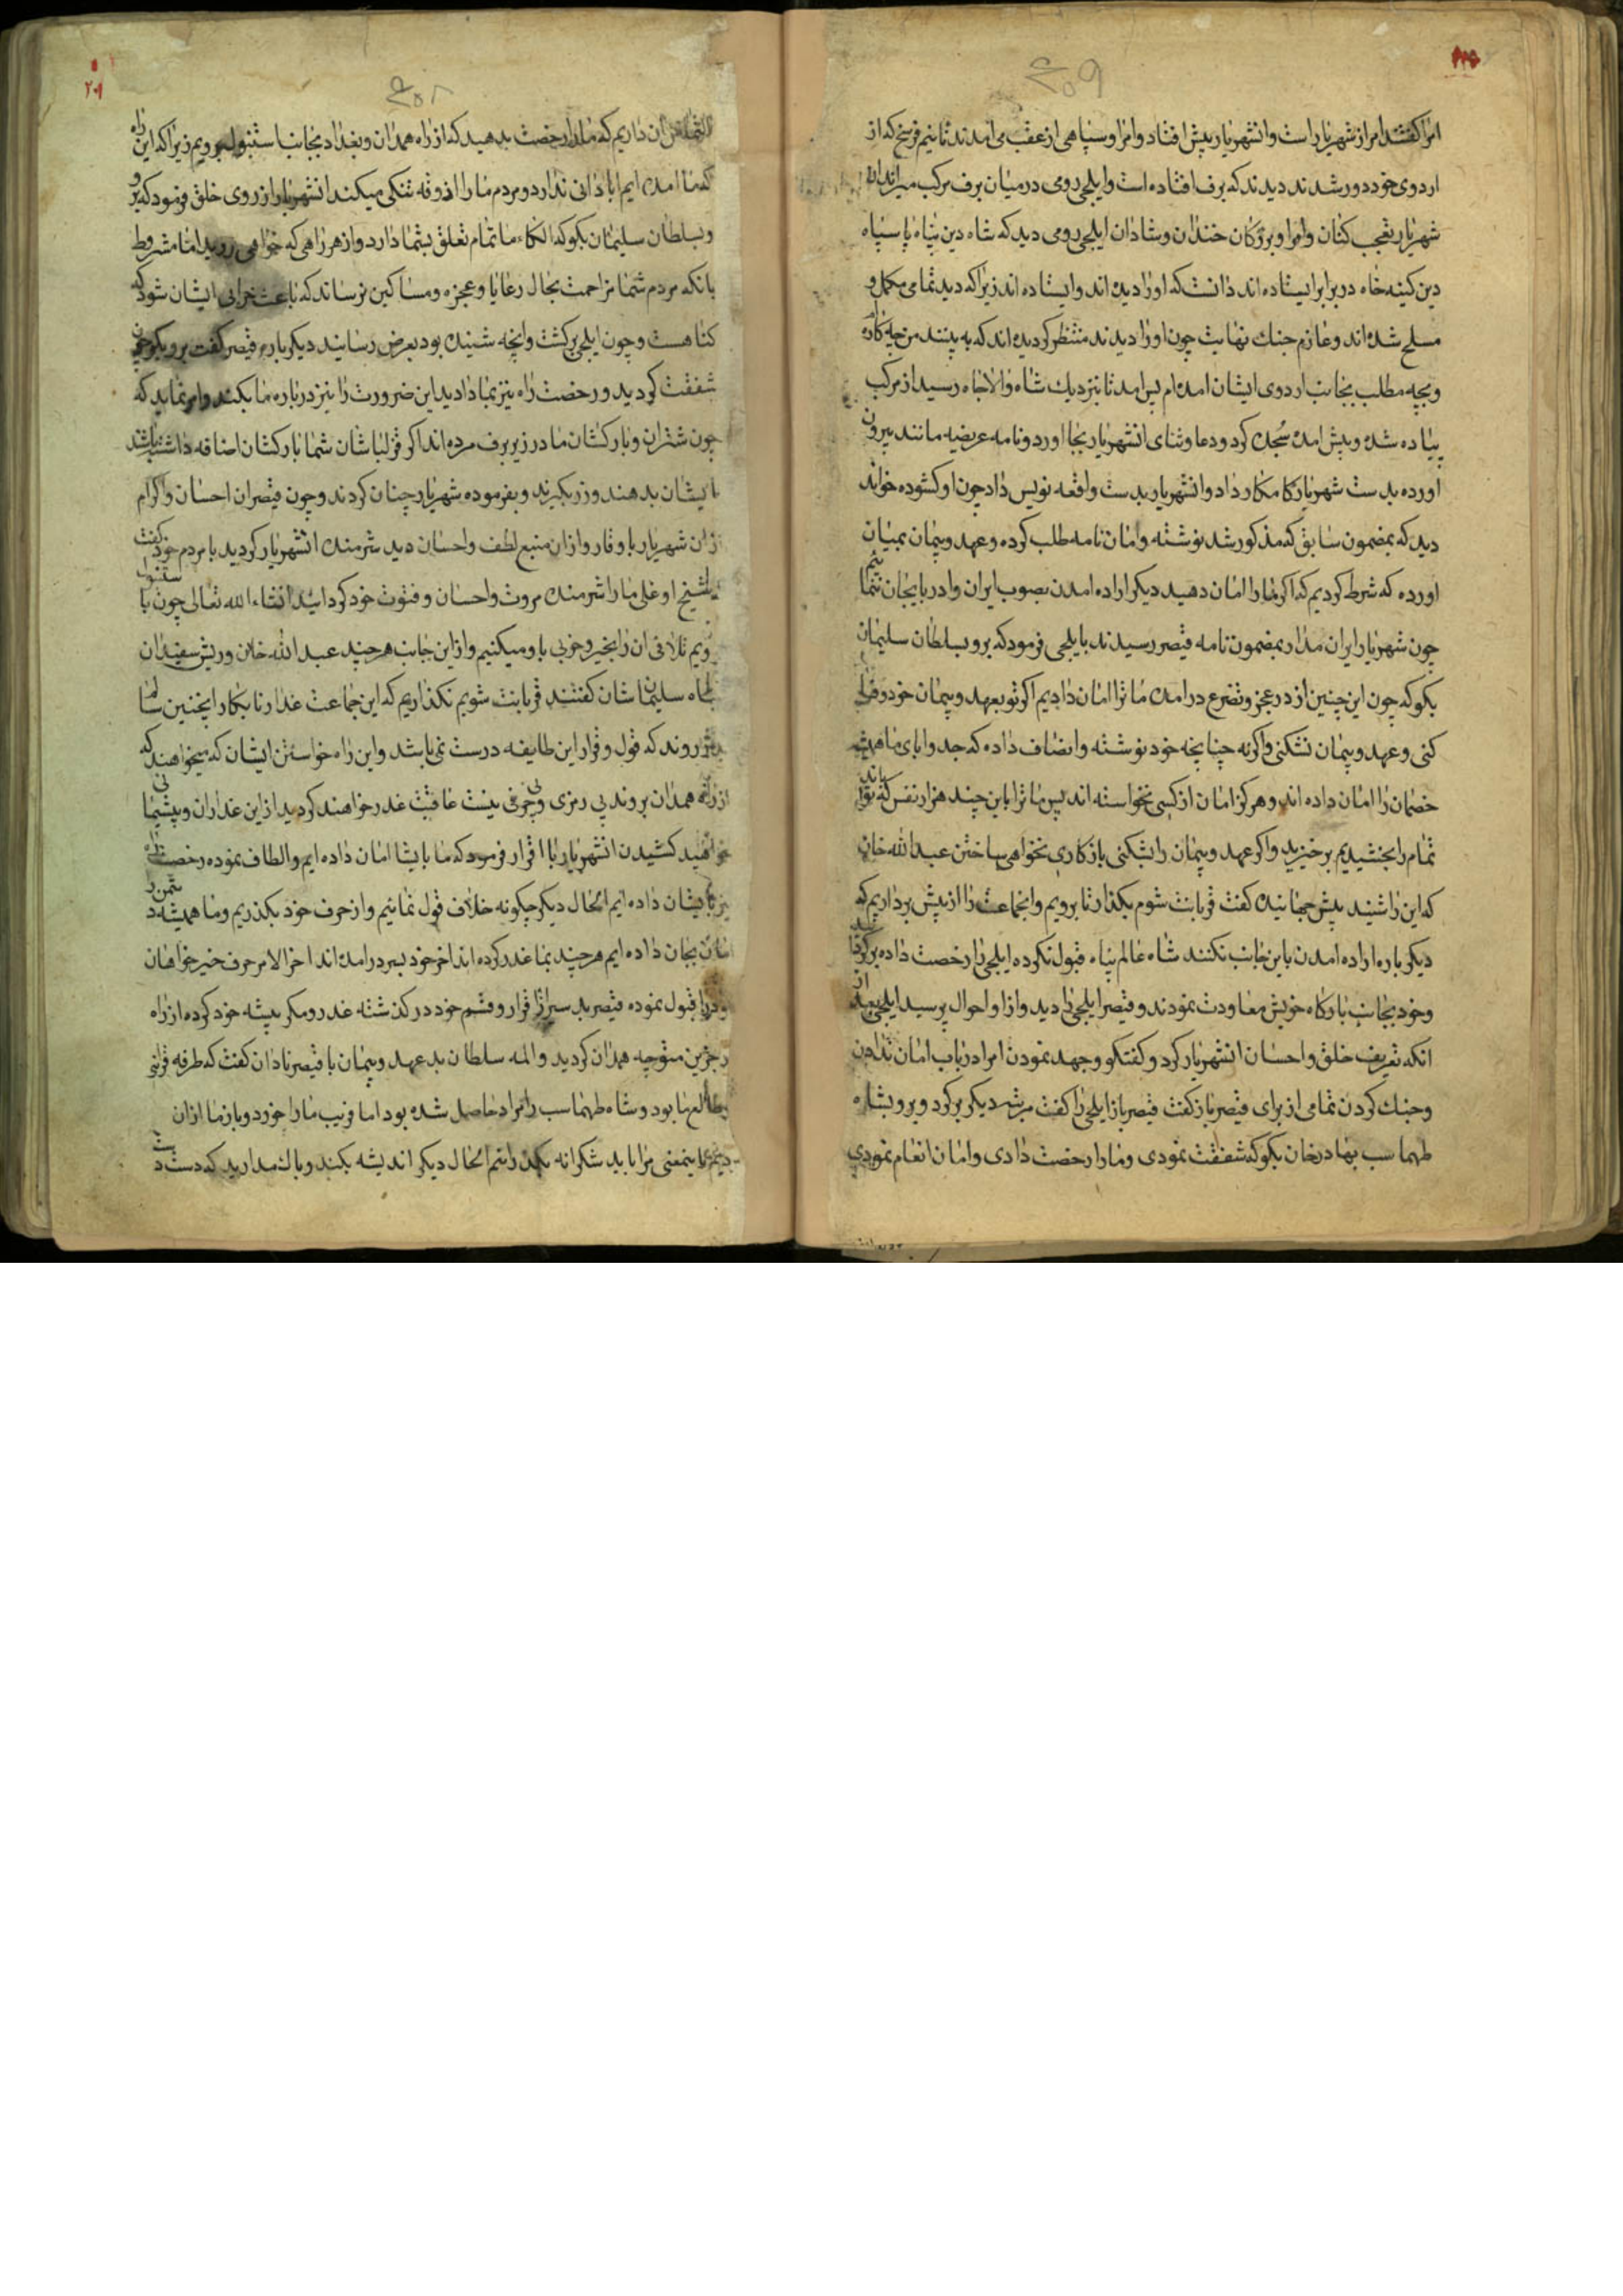 امرا گفتند امر از شهریار است و انشهریار پیش افتاد و امرا و سپاهی از عقب می امدند تا نیم فرسخ که از
اردوی خود دور شدند دیدند که برف افتاده است و ایلچی رومی در میان برف مرکب میراند ان
شهریار تعجب کنان و امرا و بزرگان خندان و شادان ایلچی رومی دید که شاه دین پناه با سپاه
دین کینه خاه در برابر ایستاده اند دانست که او را دیده اند و ایستاده اند زیرا که دید تمامی مکمل و
مسلح شده اند و عازم جنك نهایت چون او را دیدند منتظر کردیده اند که به بینند من چکاره
و بچه مطلب بجانب اردوی ایشان امده ام پس امد تا نزدیك شاه والاجاه رسید از مرکب
پیاده شده و پیش امده سجده کرد و دعا و ثنای انشهریار بجا اورد و نامه عریضه مانند بیرون
اورده بدست شهریار کامکار داد و انشهریار بدست واقعه نویس داد چون او کشوده خواند
دید که بمضمون سابق که مذکور شد نوشته و امان نامه طلب کرده و عهد و پیمان بمیان
اورده که شرط کردیم که اکر ما را امان دهید دیکر اراده امدن بصوب ایران و ادربایجان ننما ئیم
چون شهریار ایران مدار بمضمون نامه قیصر رسیدند بایلچی فرمود که برو بسلطان سلیمان
بکو که چون این چنین از در عجز و تضرع در امده ما ترا امان دادیم اکر تو بعهد و پیمان خود وفا
کنی و عهد و پیمان نشکنی و اکر نه چنانچه خود نوشته و انصاف داده که جد و ابای ما همیشه
خصمان را امان داده اند و هرکز امان از کسی نخواسته اند پس ما ترا با این چند هزار نفس که با تواند
تمام را بخشیدیم برخیزید و اکر عهد و پیمان را بشکنی باز کاری نخواهی ساختن عبد الله خان
که این را شنید پیش جهانیده کفت قربانت شوم بکذار تا برویم و انجماعت را از پیش برداریم که
دیکر باره اراده امدن باین جانب نکنند شاه عالم پناه قبول نکرده ایلچی را رخصت داده برکردانید
و خود بجانب بارکاه خویش معاودت نمودند و قیصر ایلچی را دید و از او احوال پرسید ایلچی بعد از
انکه تعریف خلق و احسان انشهریار کرد و کفتکو و جهد نمودن امرا در باب امان ندادن
و جنك کردن تمامی از برای قیصر باز کفت قیصر باز ایلچی را کفت مرتبه دیکر برکرد و برو بشاه
طهماسب بهادر خان بکو که شفقت نمودی و ما را رخصت دادی و امان انعام نمودی
۲۰۱
التماس ان داریم که ما را رخصت بدهید که از راه همدان و بغداد بجانب استنبول برویم زیرا که این راه
که ما امده ایم ابادانی ندارد و مردم ما را اذوقه تنکی میکند انشهریار از روی خلق فرمود که برو
و بسلطان سلیمان بکو که الکاء ما تمام تعلق بشما دارد و از هر راهی که خواهی روید اما مشروط
بانکه مردم شما مزاحمت بحال رعایا و عجزه و مساکین نرسانند که باعث خرابی ایشان شود که
کناهست و چون ایلچی برکشت و انچه شنیده بود بعرض رسانید دیکر باره قیصر کفت برو بکو چون
شفقت کردید و رخصت راه نیز بما دادید این ضرورت را نیز درباره ما بکنید و امر نماید که
چون شتران و بارکشان ما در زیر برف مرده اند اکر قزلباشان شما بارکشان اضافه داشته باشند
بایشان بدهند و زر بکیرند و بفرموده شهریار چنان کردند و چون قیصر ان احسان و اکرام
از ان شهریار با وقار و از ان منبع لطف و احسان دید شرمنده انشهریار کردید با مردم خود کفت
شیخ اوغلی ما را شرمنده مروت و احسان و فتوت خود کردانید انشاء الله تعالی چون باستنبول
رویم تلافی ان را بخیر و خوبی باو میکنیم و از این جانب هر چند عبد الله خان و ریش سفیدان
بشاه سلیمان شان کفتند قربانت شویم نکذاریم که این جماعت غدار نابکار اینچنین سالما
بدر روند که قول و قرار این طایفه درست نمی باشد و این راه خواستن ایشان که میخواهند که
از راه همدان بروند بی رمزی و بی حرفی نیست عاقبت غدر خواهند کردید از این غداران و پشیمانی
خواهید کشیدن انشهریار با اقرار فرمود که ما بایشا امان داده ایم و الطاف نموده رخصت راه
نیز بایشان داده ایم الحال دیکر چکونه خلاف قول نمائیم و از حرف خود بکذریم و ما همیشه دشمن را
امان بجان داده ایم هر چند بما غدر کرده اند اخر خود بسر در امده اند اخر الامر حرف خیر خواهان
خود را قبول نموده قیصر بد سیر از قرار و قسم خود در کذشته غدر و مکر پیشه خود کرده از راه
درجزین متوجه همدان کردید و المه سلطان بد عهد و پیمان با قیصر نادان کفت که طرفه قرانی
بطالع ما بود و شاه طهماسب را مراد حاصل شده بود اما فریب ما را خورد و باز ما از ان
اینمعنی مرا باید شکرانه بکنم الحال دیکر اندیشه بکنید و باك مدارید که دست